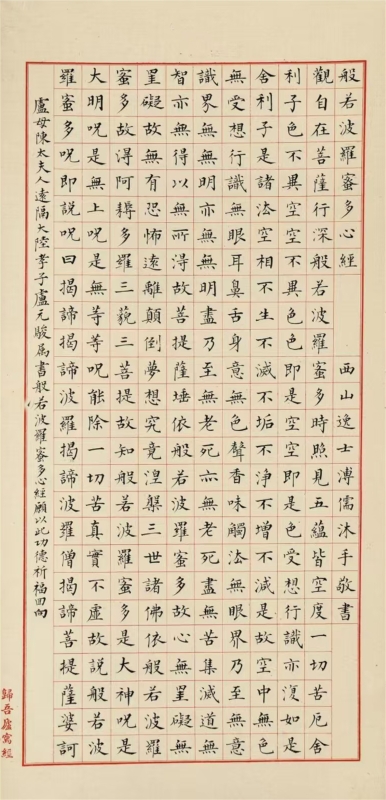 般若波羅蜜多心經　西山逸士溥儒沐手敬書
觀自在菩薩行深般若波羅蜜多時照見五蘊皆空度一切苦厄舍
利子色不異空空不異色色即是空空即是色受想行識亦復如是
舍利子是諸法空相不生不滅不垢不淨不增不減是故空中無色
無受想行識無眼耳鼻舌身意無色聲香味觸法無眼界乃至無意
識界無無明亦無無明盡乃至無老死亦無老死盡無苦集滅道無
智亦無得以無所得故菩提薩埵依般若波羅蜜多故心無罣礙無
罣礙故無有恐怖遠離顛倒夢想究竟湼槃三世諸佛依般若波羅
蜜多故得阿耨多羅三藐三菩提故知般若波羅蜜多是大神呪是
大明呪是無上呪是無等等呪能除一切苦真實不虛故說般若波
羅蜜多呪即說呪曰揭諦揭諦波羅揭諦波羅僧揭諦菩提薩婆訶
盧母陳太夫人遠隔大陸孝子盧元駿屬書般若波羅蜜多心經願以此功德祈福回向
歸吾廬寫經